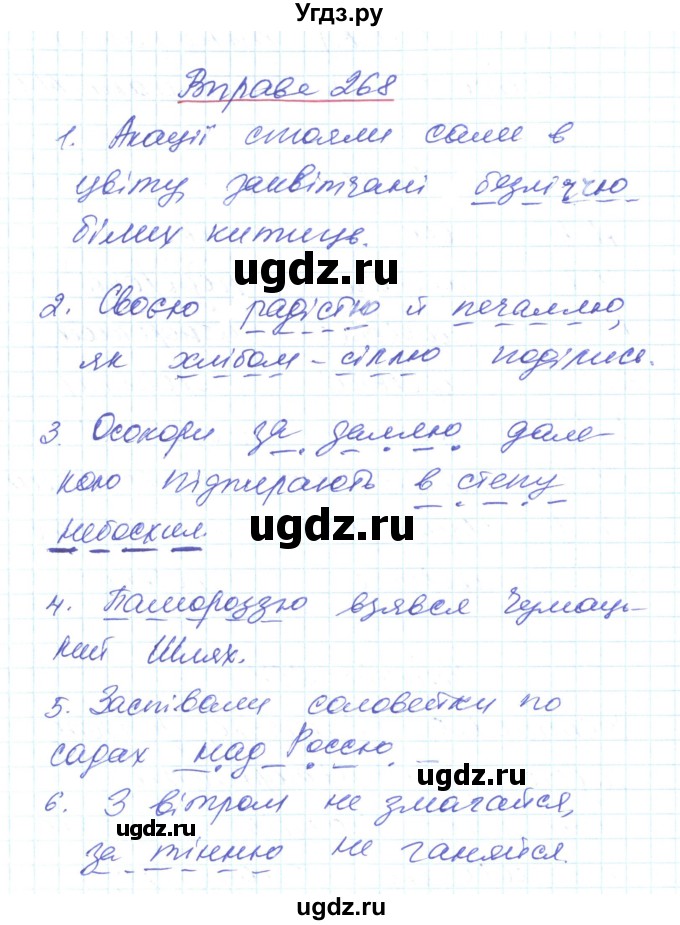 Угдз.ру
Вправа 268
1. Акації стояли саме в
цвіту, заквітчані безліччю
білих китиць.
ugdz.ru
2. Своєю радістю й печаллю,
як хлібом-сіллю поділись.
3 Осокори за землю дале-
кою підпирають в степу
ugdz.ru
небосхил.
4. Памороззю взявся Чумаць-
кий Шлях.
ugdz.ru
5. Заспівали соловейки по
садах над Россю.
ugdz.ru
6. З вітром не змагайся,
за тінню не ганяйся.
ugdz.ru